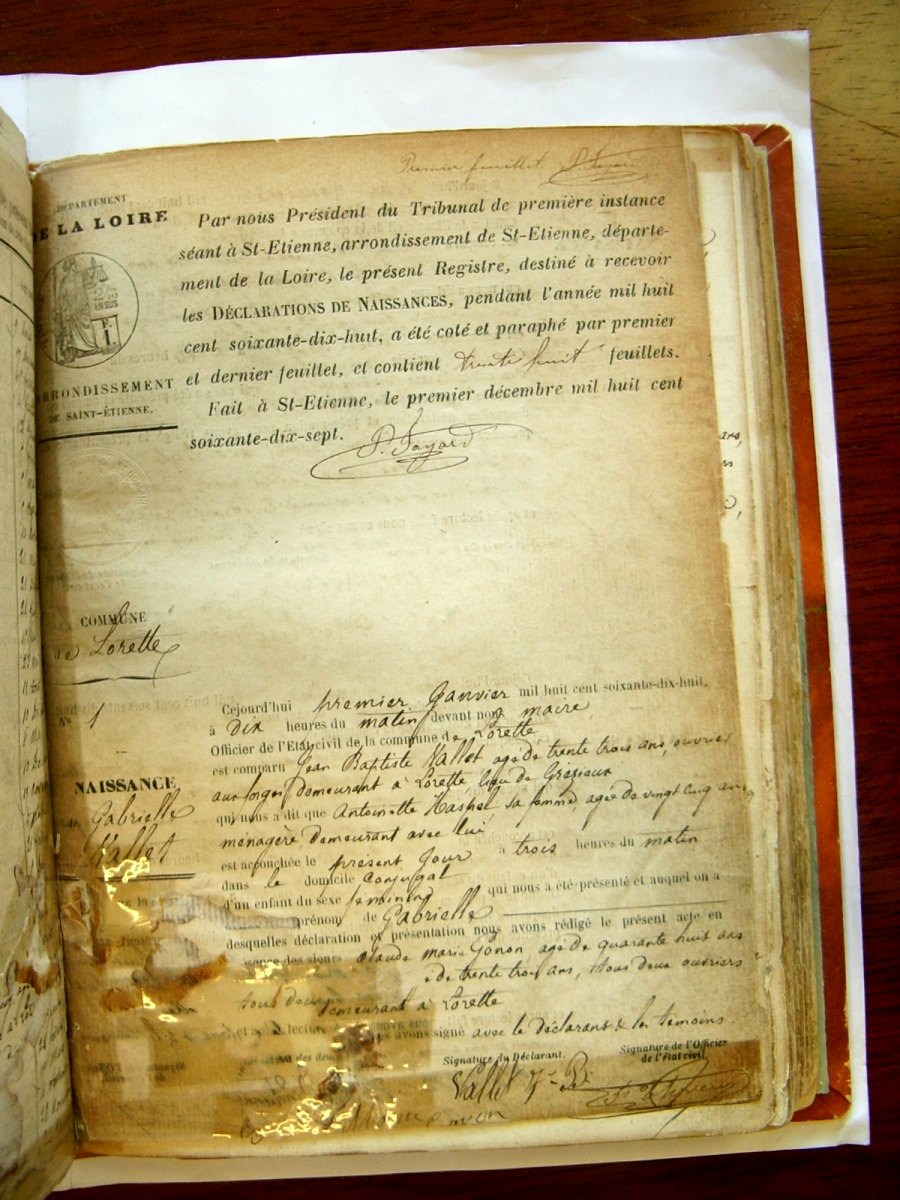 Premier feuillet. P. Fayard
DÉPARTEMENT
DE LA LOIRE
Par nous Président du Tribunal de première instance
séant à St-Etienne, arrondissement de St-Etienne, départe-
ment de la Loire, le présent Registre, destiné à recevoir
les DÉCLARATIONS DE NAISSANCES, pendant l'année mil huit
cent soixante-dix-huit, a été coté et paraphé par premier
et dernier feuillet, et contient trente huit feuillets.
Fait à St-Etienne, le premier décembre mil huit cent
soixante-dix-sept. P. Fayard
ARRONDISSEMENT
DE SAINT-ÉTIENNE.
COMMUNE
de Lorette
N° 1
NAISSANCE
Gabrielle
Vallet
Cejourd'hui premier Janvier mil huit cent soixante-dix-huit,
à dix heures du matin devant nous maire
Officier de l'Etat civil de la commune de Lorette
est comparu Jean Baptiste Vallet agé de trente trois ans, ouvrier
aux forges demeurant à Lorette
qui nous a dit que Antoinette sa femme agée de vingt cinq ans
ménagère demeurant avec lui
est accouchée le présent Jour à trois heures du matin
dans le domicile conjugal
d'un enfant du sexe féminin qui nous a été présenté et auquel on a
prénom de Gabrielle
desquelles déclaration et présentation nous avons rédigé le présent acte en
des sieurs Claude marie Gonon agé de quarante huit ans
de trente trois ans, tous deux ouvriers
tous deux demeurant à Lorette
et lecture avons signé avec le déclarant & les temoins.
Signature du Déclarant.
Signature de l'Officier
de l'état civil,
Vallet J-B